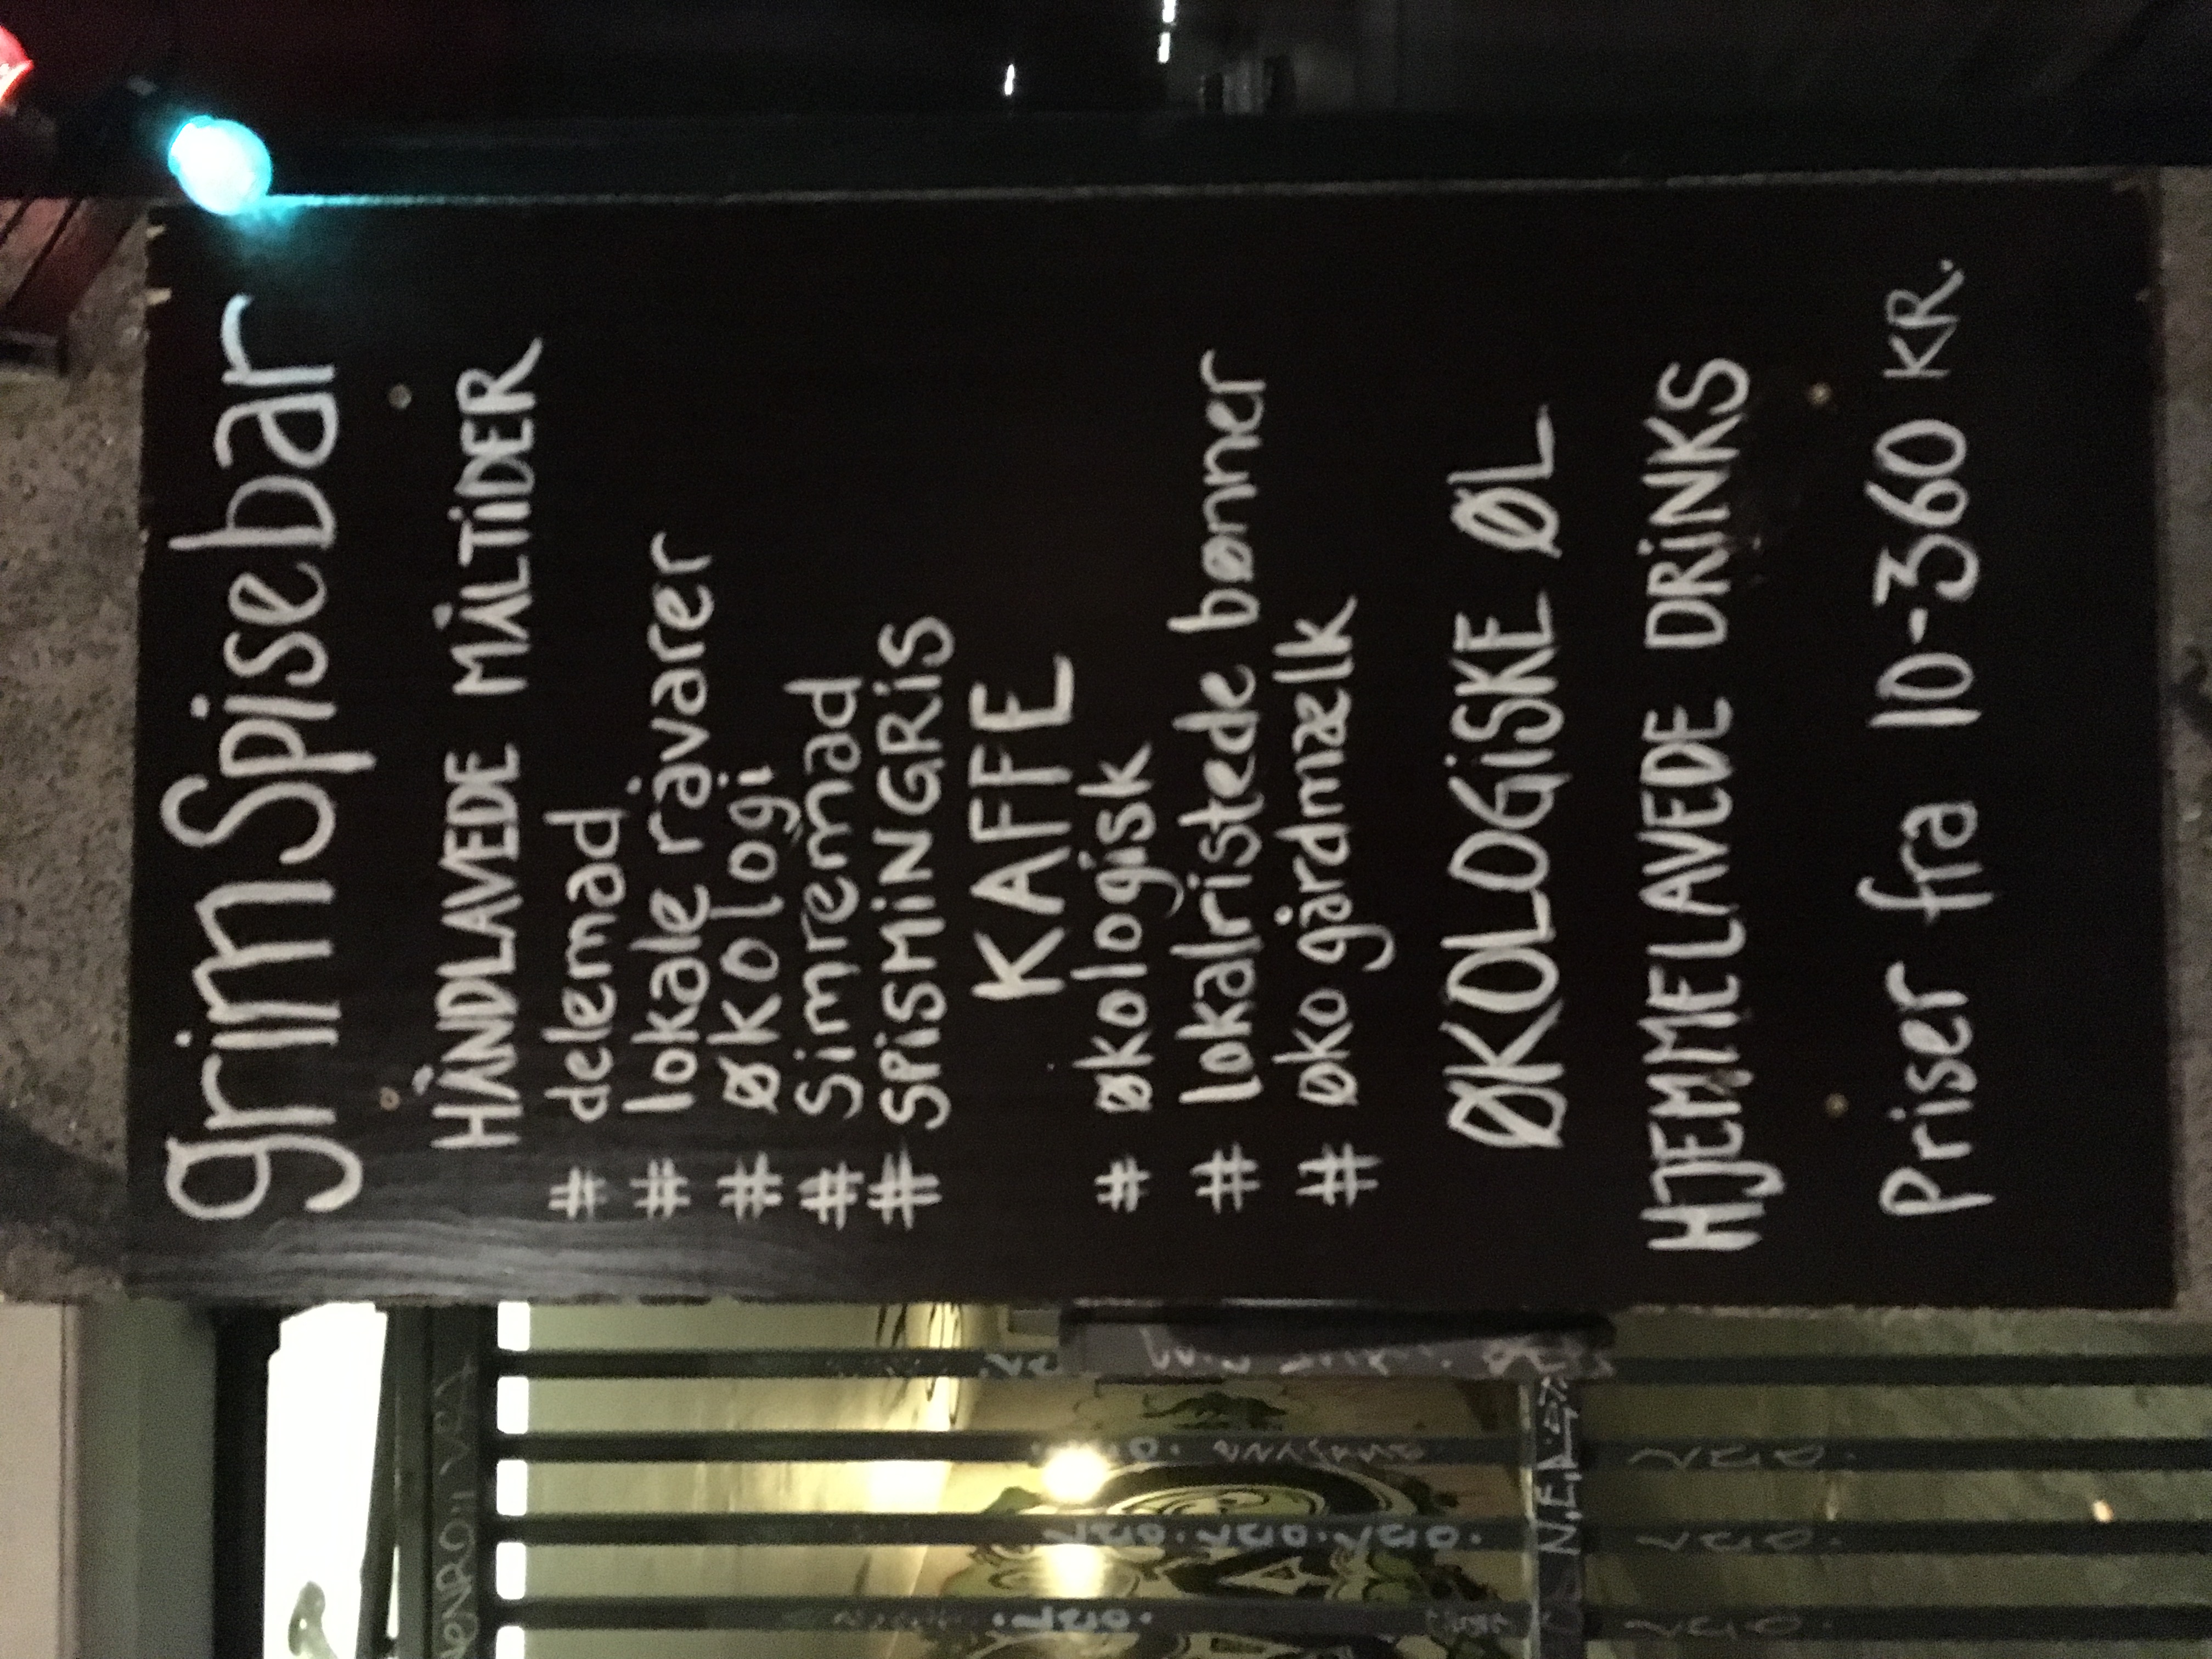 grimSpisebar
HÅNDLAVEDE MÅLTiDER
# delemad
# lokale råvarer
# økologi
# Simremad
# SPiSMiNGRiS
KAFFE
# økologisk
# lokalristede bønner
# øko gårdmælk
ØKOLOGiSKE ØL
HJEMMELAVEDE DRiNKS
Priser fra 10-360 KR.